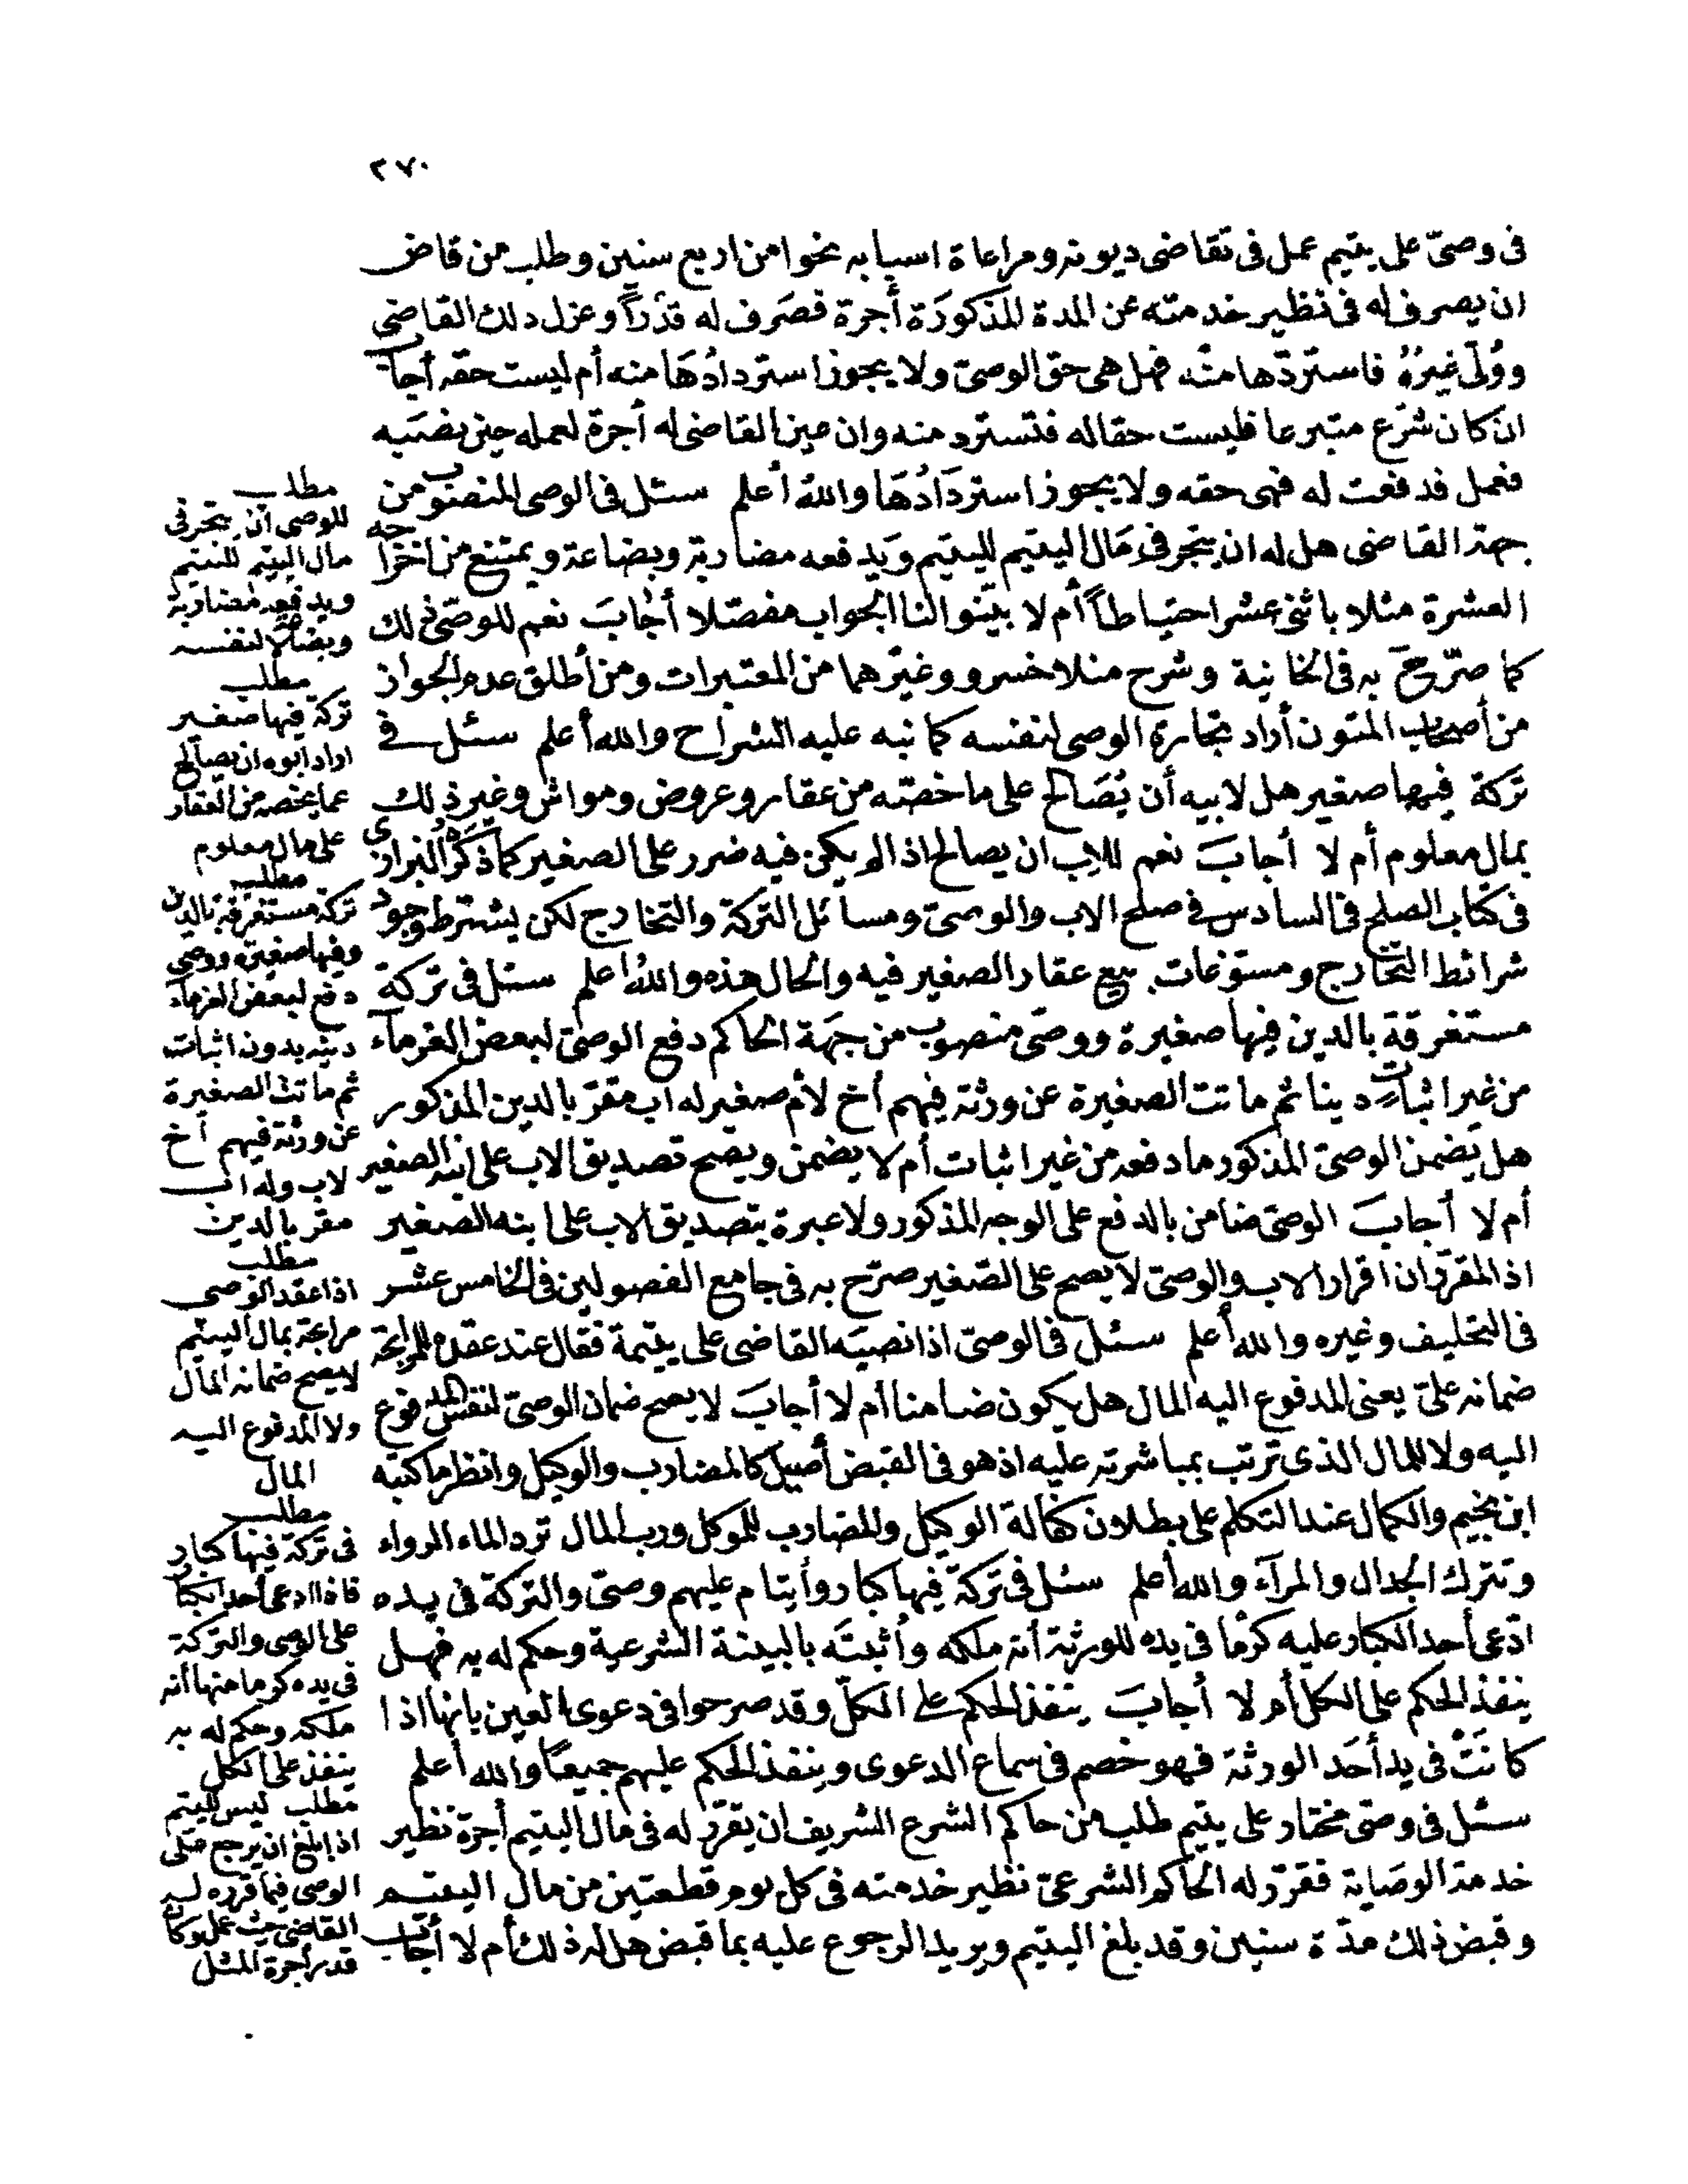 ٢٧٠
فى وصىّ على يتيم عمل فى تقاضى ديونه ومراعاة اسبابه نحوا من اربع سنين وطلب من قاض
ان يصرف له فى نظير خدمته عن المدة المذكورَة أجرة فصَرف له قدْراً وعزل ذلك القاضى
ووُلّى غيرُهُ فاستردّها منه فهل هى حق الوصىّ ولا يجوز استردادُهَا منه أم ليست حقه أجاب
ان كان شَرَع متبرعا فليست حقا له فتسترد منه وان عين القاضى له أجرة لعمله حين نصَبه
فعمل فدفعت له فهى حقه ولا يجوز استردَادُهَا واللهُ أعلم سئل فى الوصى المنصوب من
جهة القاضى هل له ان يتجر فى مَال اليتيم لليتيم وَيدفعه مضاربة وبضاعة ويمتنع من اخراجه
العشرة مثلا باثنى عشر احتياطاً أم لا بيّنوا لنا الجواب مفصّلا أجابَ نعم للوصّى ذلك
كما صرّح به فى الخانية وشرح منلا خسرو وغيرهما من المعتبرات ومن أطلق عدم الجواز
من أصحاب المتون أراد تجارة الوصى لنفسه كما نبه عليه الشراح والله أعلم سئل فى
تَركة فيها صغير هل لابيه أن يُصَالح على ما خصّه من عقار وعروض ومواش وغير ذلك
بمال معلوم أم لا أجابَ نعم للاب ان يصالح اذا لم يكن فيه ضرر على الصغير كما ذكَرَهُ البزازى
فى كتاب الصلح فى السادس فى صلح الاب والوصىّ ومسائل التركة والتخارج لكن يشترط وجود
شرائط التخارج ومسوّغات بيع عقار الصغير فيه والحال هذه واللهُ اعلم سئل فى تركة
مستغرقة بالدين فيها صغيرة ووصَى منصوب من جهَة الحاكم دفع الوصىّ لبعض الغرماء
من غير اثبات دينا ثم ماتت الصغيرة عن ورثة فيهم أخ لأم صغير له اب مقرّ بالدين المذكور
هل يَضمن الوصىّ المذكور ما دفعه من غير اثبات أم لا يضمن ويصح تصديق الاب على ابنه الصغير
أم لا أجابَ الوصىّ ضامن بالدفع على الوجه المذكور ولا عبرة بتصديق الاب على ابنه الصغير
اذ المقرّر ان اقرار الاب والوصىّ لا يصح على الصّغير صرّح به فى جامع الفصولين فى الخامس عشر
فى التحليف وغيره والله أعلم سئل فى الوصىّ اذا نصبَه القاضى على يتيمة فقال عند عقده المرابحة
ضمانه علىّ يعنى المدفوع اليه المال هل يكون ضامنا أم لا أجابَ لا يصح ضمان الوصىّ لنفس المدفوع
اليه ولا للمال الذى ترتب بمباشرته عليه اذ هو فى القبض أصيل كالمضارب والوكيل وانظر ما كتبه
ابن نجيم والكمال عند التكلم على بطلان كفالة الوكيل والمضارب للموكل ورب المال ترد الماء الرواء
وتترك الجدال والمرآء والله أعلم سئل فى تَركة فيها كبار وأيتام عليهم وصىّ والتركة فى يده
ادّعى أحد الكبار عليه كرْما فى يده للورثة أنه ملكه وأثبتَه بالبينة الشرعية وحكم له به فهل
ينفذ الحكم على الكل أم لا أجابَ ينفذ الحكم على الكلّ وقد صرحوا فى دعوى العين بانها اذا
كانَتْ فى يد أحَد الورثة فهو خصم فى سماع الدعوى وينفذ الحكم عليهم جميعًا والله أعلم
سئل فى وصىّ مختار على يتيم طلب من حاكم الشرع الشريف ان يقرّر له فى مال اليتيم أجرة نظير
خدمة الوصَاية فقرّر له الحاكم الشرعىّ نظير خدمته فى كل يوم قطعتين من مال اليتيم
وقبض ذلك مدّة سنين وقد بلغ اليتيم ويريد الرجوع عليه بما قبض هل له ذلك أم لا أجاب
مطلب
للوصى ان يتجر فى
مال اليتيم لليتيم
ويدفعه مضاربة
وبضاعة لا لنفسه
مطلب
تركة فيها صغير
اراد ابوه ان يصالح
عما يخصه من العقار
على مال معلوم
مطلب
تركة مستغرقة بالدين
وفيها صغيرة ووصى
دفع لبعض الغرماء
دينه بدون اثبات
ثم ماتت الصغيرة
عن ورثة فيهم أخ
لاب وله اب
مقر بالدين
مطلب
اذا عقد الوصى
مرابحة بمال اليتيم
لا يصح ضمانه المال
ولا المدفوع اليه
المال
مطلب
فى تركة فيها كبار
فاذا ادعى أحد الكبار
على الوصى والتركة
فى يده كرما منها أنه
ملكه وحكم له به
ينفذ على الكل
مطلب ليس لليتيم
اذا بلغ ان يرجع على
الوصى فيما قرره له
القاضى حيث عمل وكان
قدر أجرة المثل